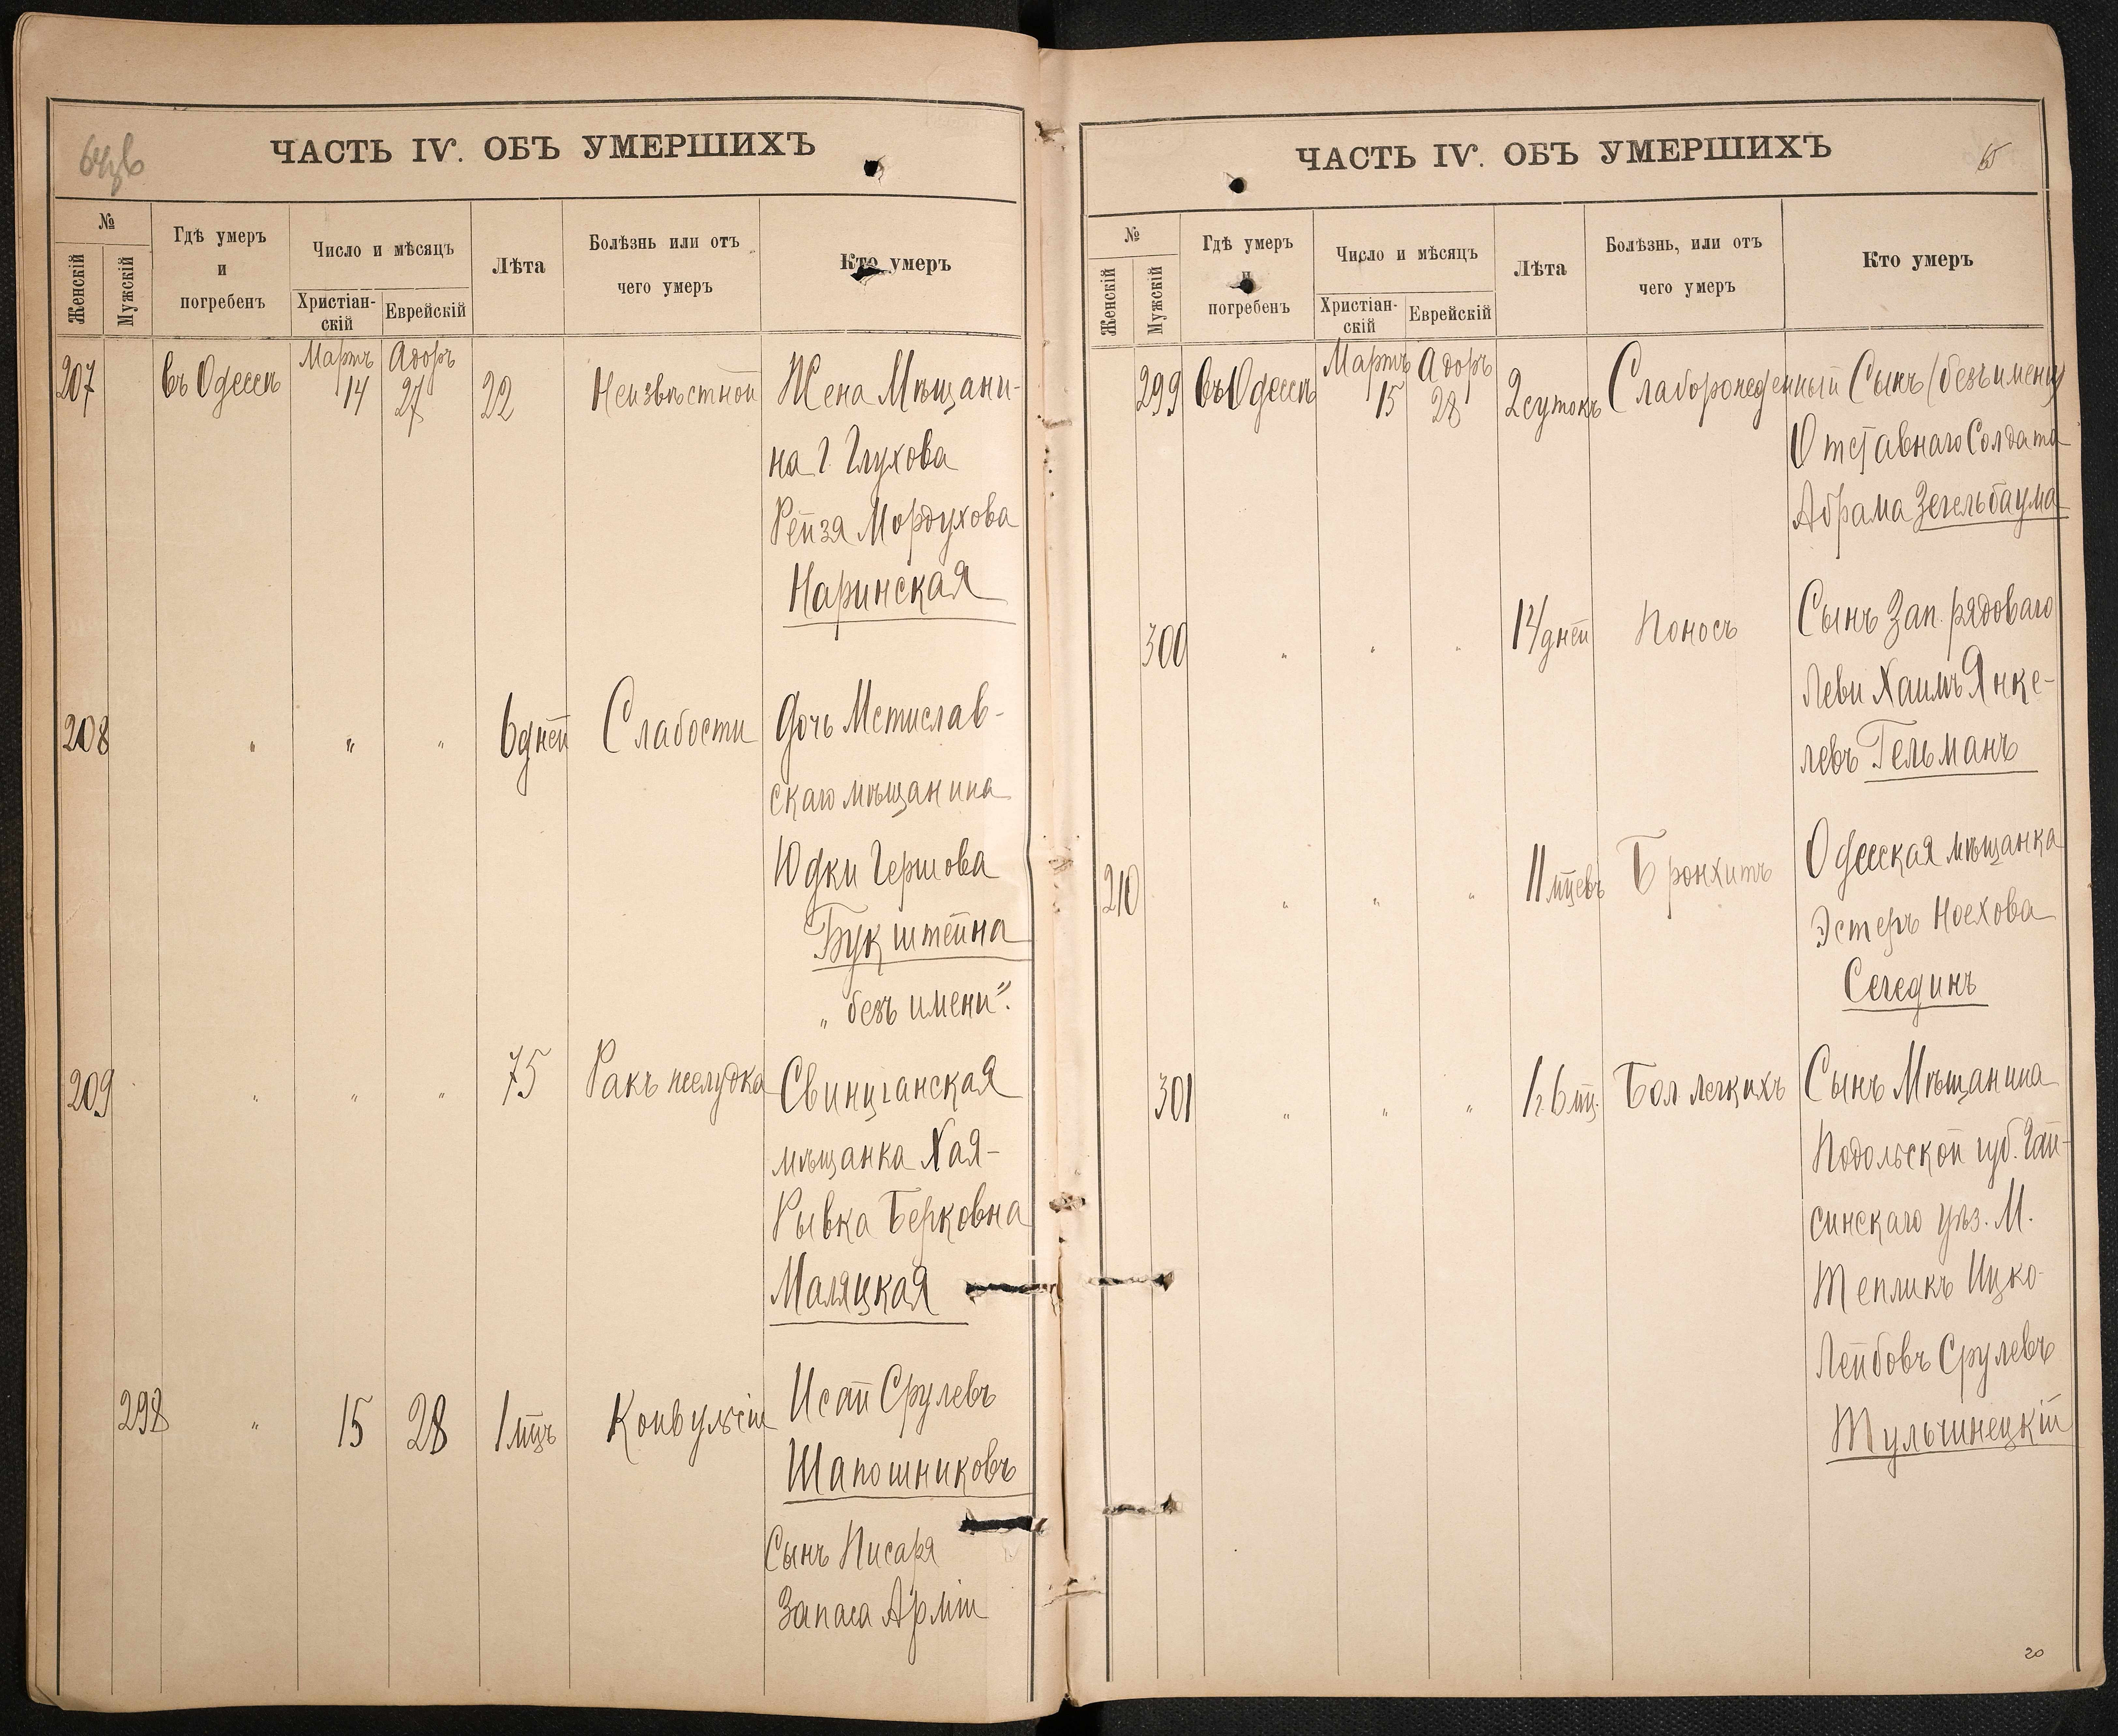 64об
ЧАСТЬ IV. ОБЪ УМЕРШИХЪ
№
Женскій
Мужскій
Гдѣ умеръ
и
погребенъ
Число и мѣсяцъ
Христіан-
скій
Еврейскій
Лѣта
Болѣзнь или отъ
чего умеръ
Кто умеръ
207 въ Одессѣ Мартъ 14 Адоръ 27 22 Неизвѣстной Жена Мѣщани-
на г. Глухова
Рейзя Мордухова
Наринская
208 " " " 6 дней Слабости Дочь Мстислав-
скаго мѣщанина
Юдки Гершова
Букштейна
„ безъ имени".
209 " " " 75 Ракъ желудка Свинцганская
мѣщанка Хая-
Рывка Берковна
Маляцкая
298 " 15 28 1 мцъ Конвульсіи Исай Срулевъ
Шапошниковъ
Сынъ Писаря
Запаса Арміи
ЧАСТЬ IV. ОБЪ УМЕРШИХЪ
65
№
Женскій
Мужскій
Гдѣ умеръ
и
погребенъ
Число и мѣсяцъ
Христіан-
скій
Еврейскій
Лѣта
Болѣзнь, или отъ
чего умеръ
Кто умеръ
299 въ Одессѣ Мартъ 15 Адоръ 28 2 сутокъ Слаборожденный Сынъ (безъ имени)
Отставнаго Солдата
Абрама Зегельбаума
300 " " " 14 дней Поносъ Сынъ Зап. рядоваго
Леви Хаимъ Янке-
левъ Гельманъ
210 " " " 11 мцевъ Бронхитъ Одесская мѣщанка
Эстеръ Ноехова
Сегединъ
301 " " " 1 г. 6 мц. Бол. легкихъ Сынъ Мѣщанина
Подольской губ. Гай-
синскаго уѣз. М.
Тепликъ Ицко-
Лейбовъ Срулевъ
Тульчинецкій
20